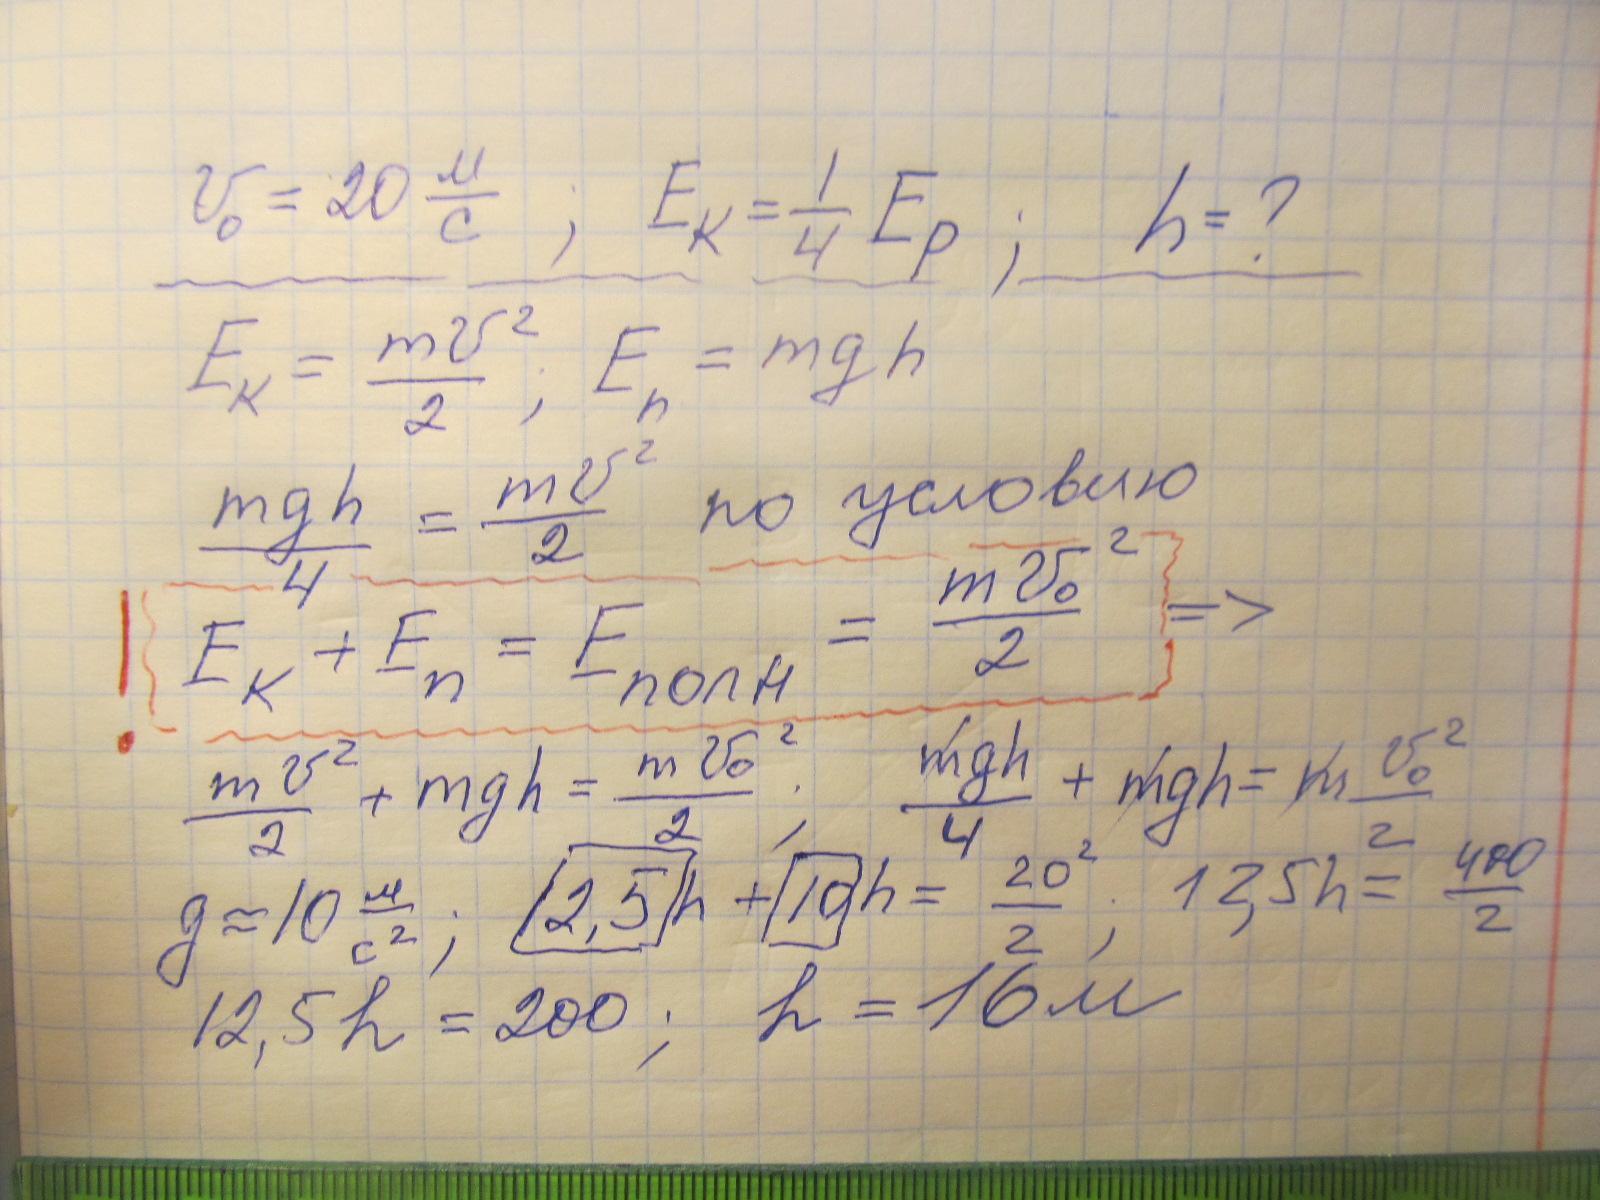 v₀ = 20 м/с ; Eк = 1/4 Eр ; h = ?
Eк = mv²/2 ; Eп = mgh
mgh/4 = mv²/2 по условию
! Eк + Eп = Eполн = mv₀²/2 =>
mv²/2 + mgh = mv₀²/2 ; mgh/4 + mgh = m v₀²/2
g ≈ 10 м/с² ; 2,5 h + 10 h = 20²/2 ; 12,5h = 400/2
12,5h = 200 ; h = 16 м